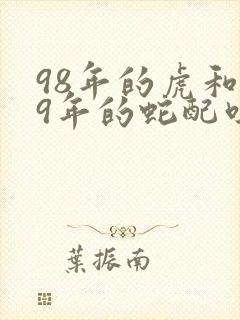 98年的虎和
9年的蛇配
葉振南